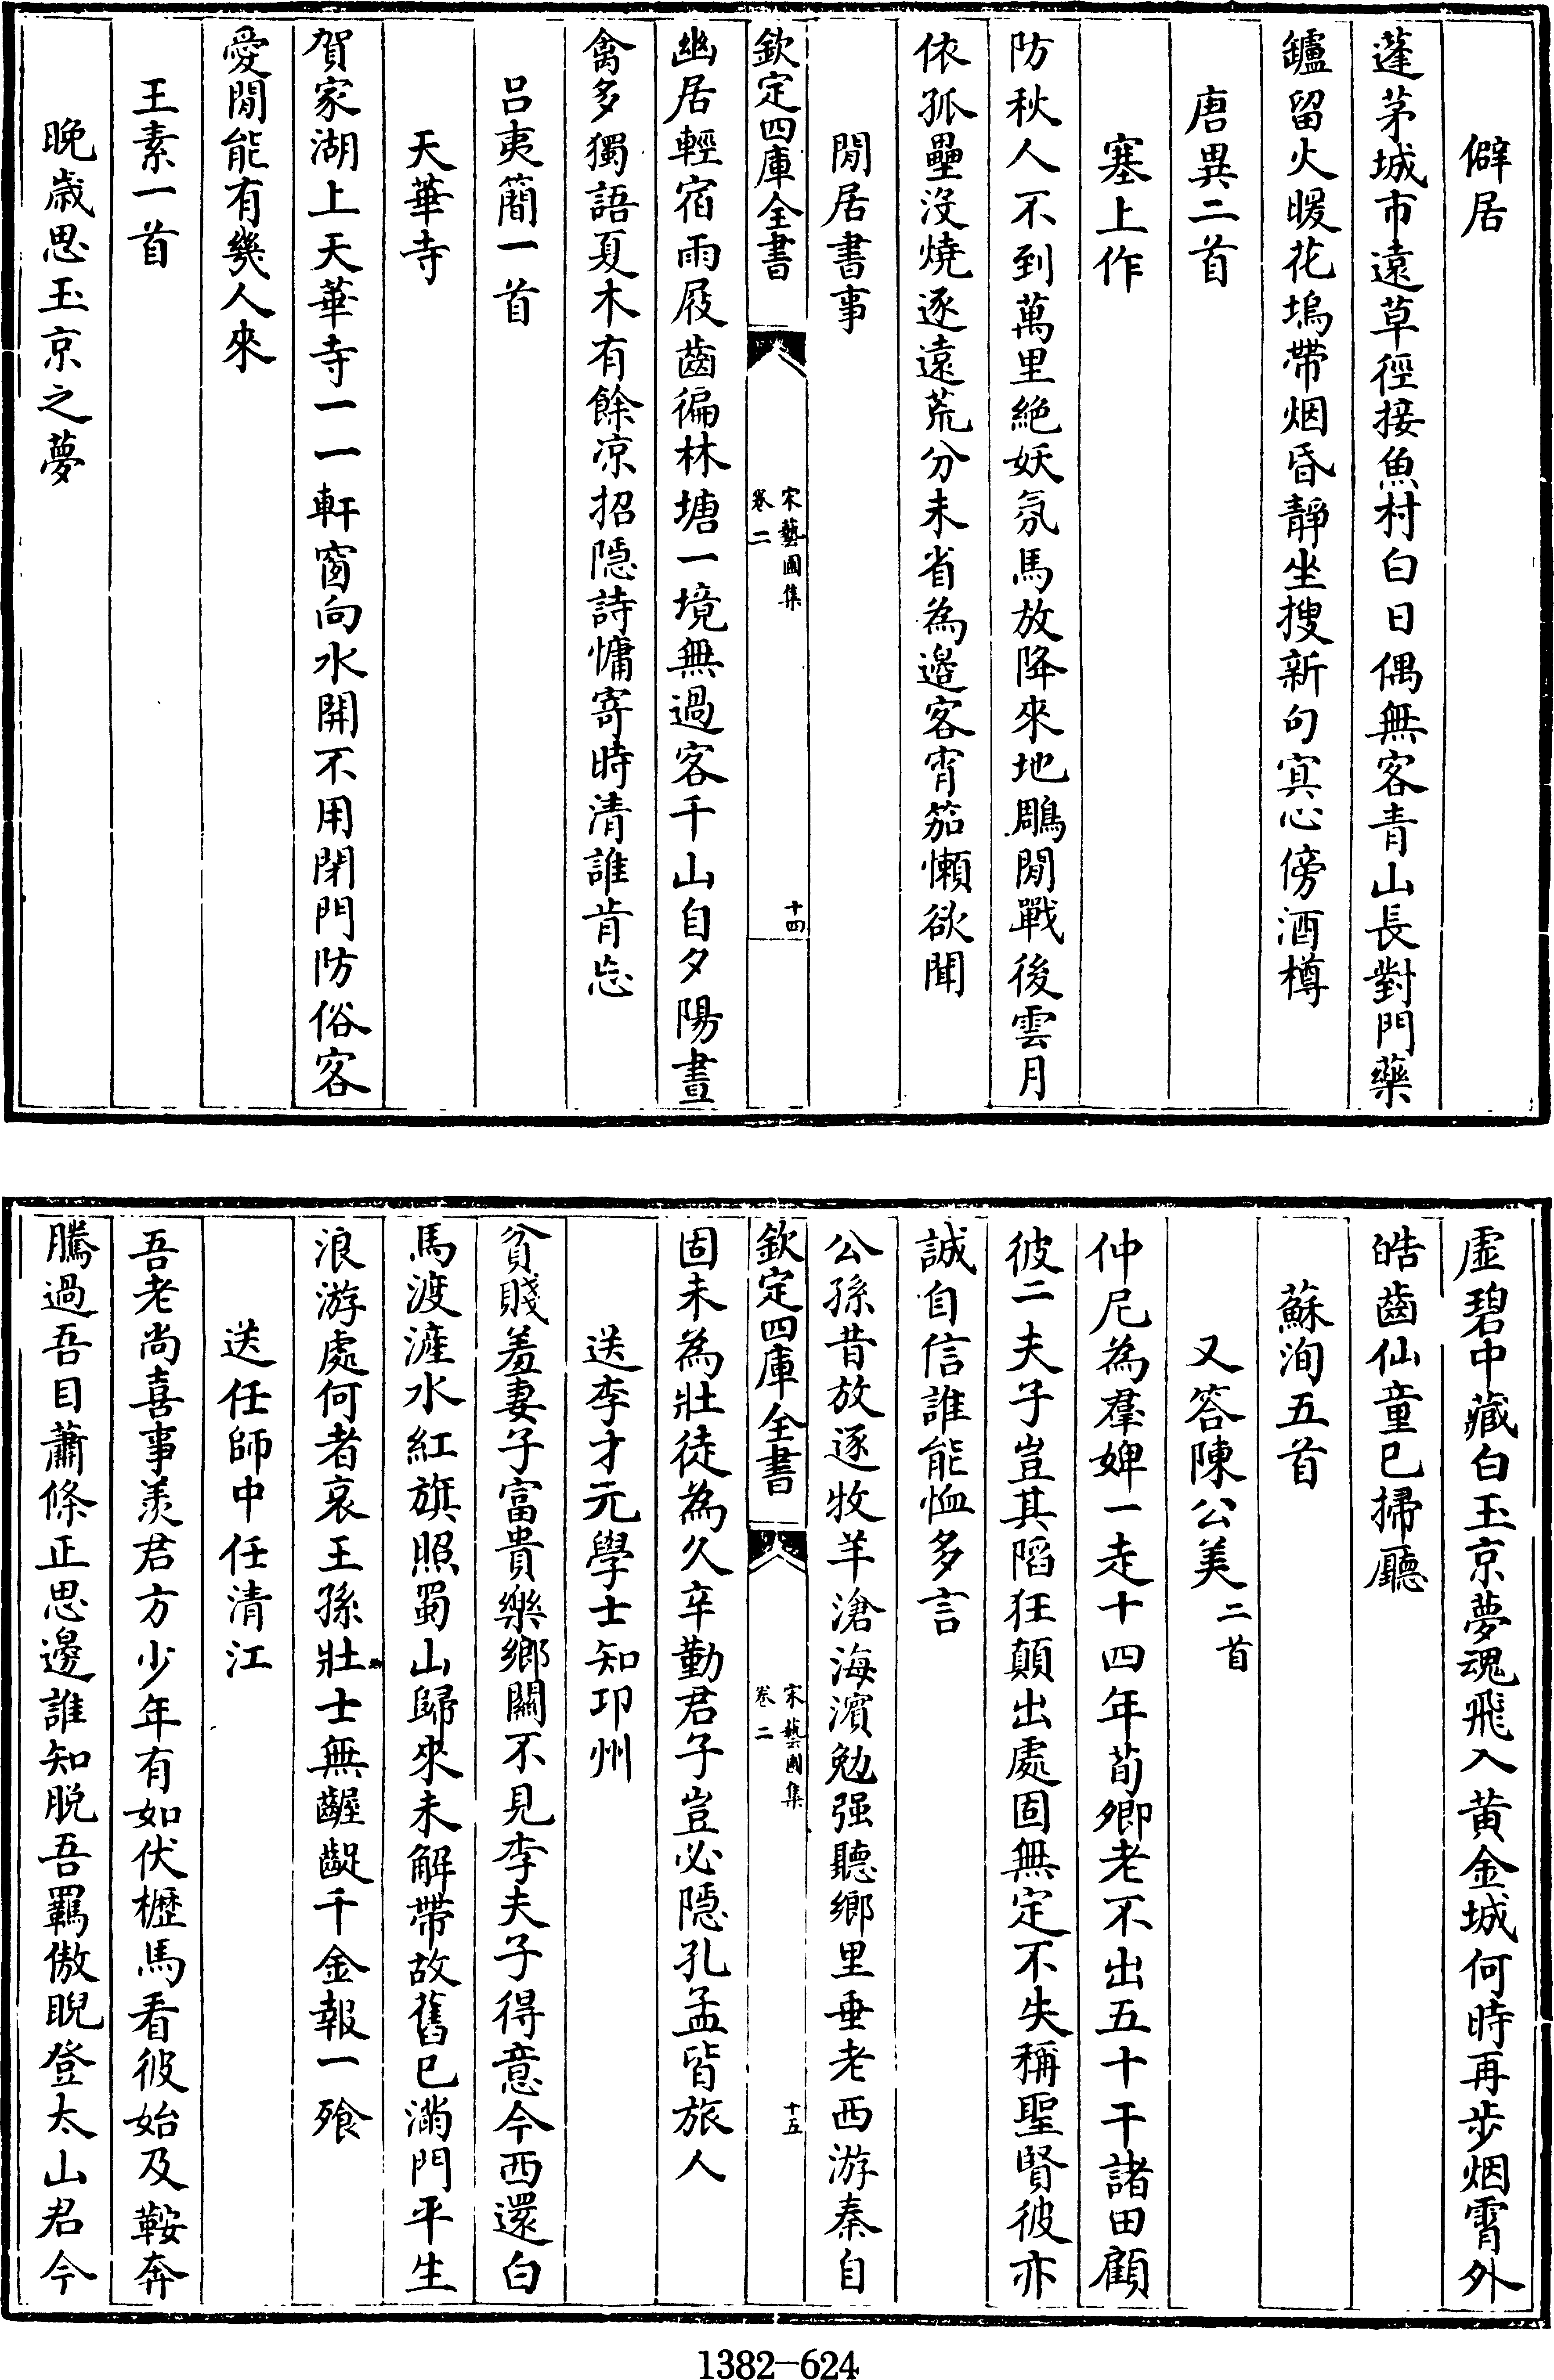 僻居
蓬茅城市遠草徑接魚村白日偶無客青山長對門藥
鑪留火暖花塢帶烟昏靜坐搜新句冥心傍酒樽
唐異二首
塞上作
防秋人不到萬里絶妖氛馬放降來地鵰閒戰後雲月
依孤壘没燒逐遠荒分未省為邉客宵笳懶欲聞
閒居書事
欽定四庫全書
宋藝圃集
卷二
十四
幽居輕宿雨屐齒徧林塘一境無過客千山自夕陽晝
禽多獨語夏木有餘凉招隱詩慵寄時清誰肯忘
吕夷簡一首
天華寺
賀家湖上天華寺一一軒窗向水開不用閉門防俗客
愛閒能有幾人來
王素一首
晚歲思玉京之夢
虛碧中藏白玉京夢魂飛入黄金城何時再步烟霄外
皓齒仙童已掃廳
蘇洵五首
又答陳公美二首
仲尼為羣婢一走十四年荀卿老不出五十干諸田顧
彼二夫子豈其陷狂顛出處固無定不失稱聖賢彼亦
誠自信誰能恤多言
公孫昔放逐牧羊滄海濱勉强聽鄉里垂老西游秦自
欽定四庫全書
宋藝圃集
卷二
十五
固未為壯徒為久辛勤君子豈必隱孔孟皆旅人
送李才元學士知卭州
貧賤羞妻子富貴樂鄉關不見李夫子得意今西還白
馬渡滻水紅旗照蜀山歸來未解帶故舊已滿門平生
浪游處何者哀王孫壯士無齷齪千金報一飱
送任師中任清江
吾老尚喜事羨君方少年有如伏櫪馬看彼始及鞍奔
騰過吾目蕭條正思邊誰知脱吾羈傲睨登太山君今
1382-624